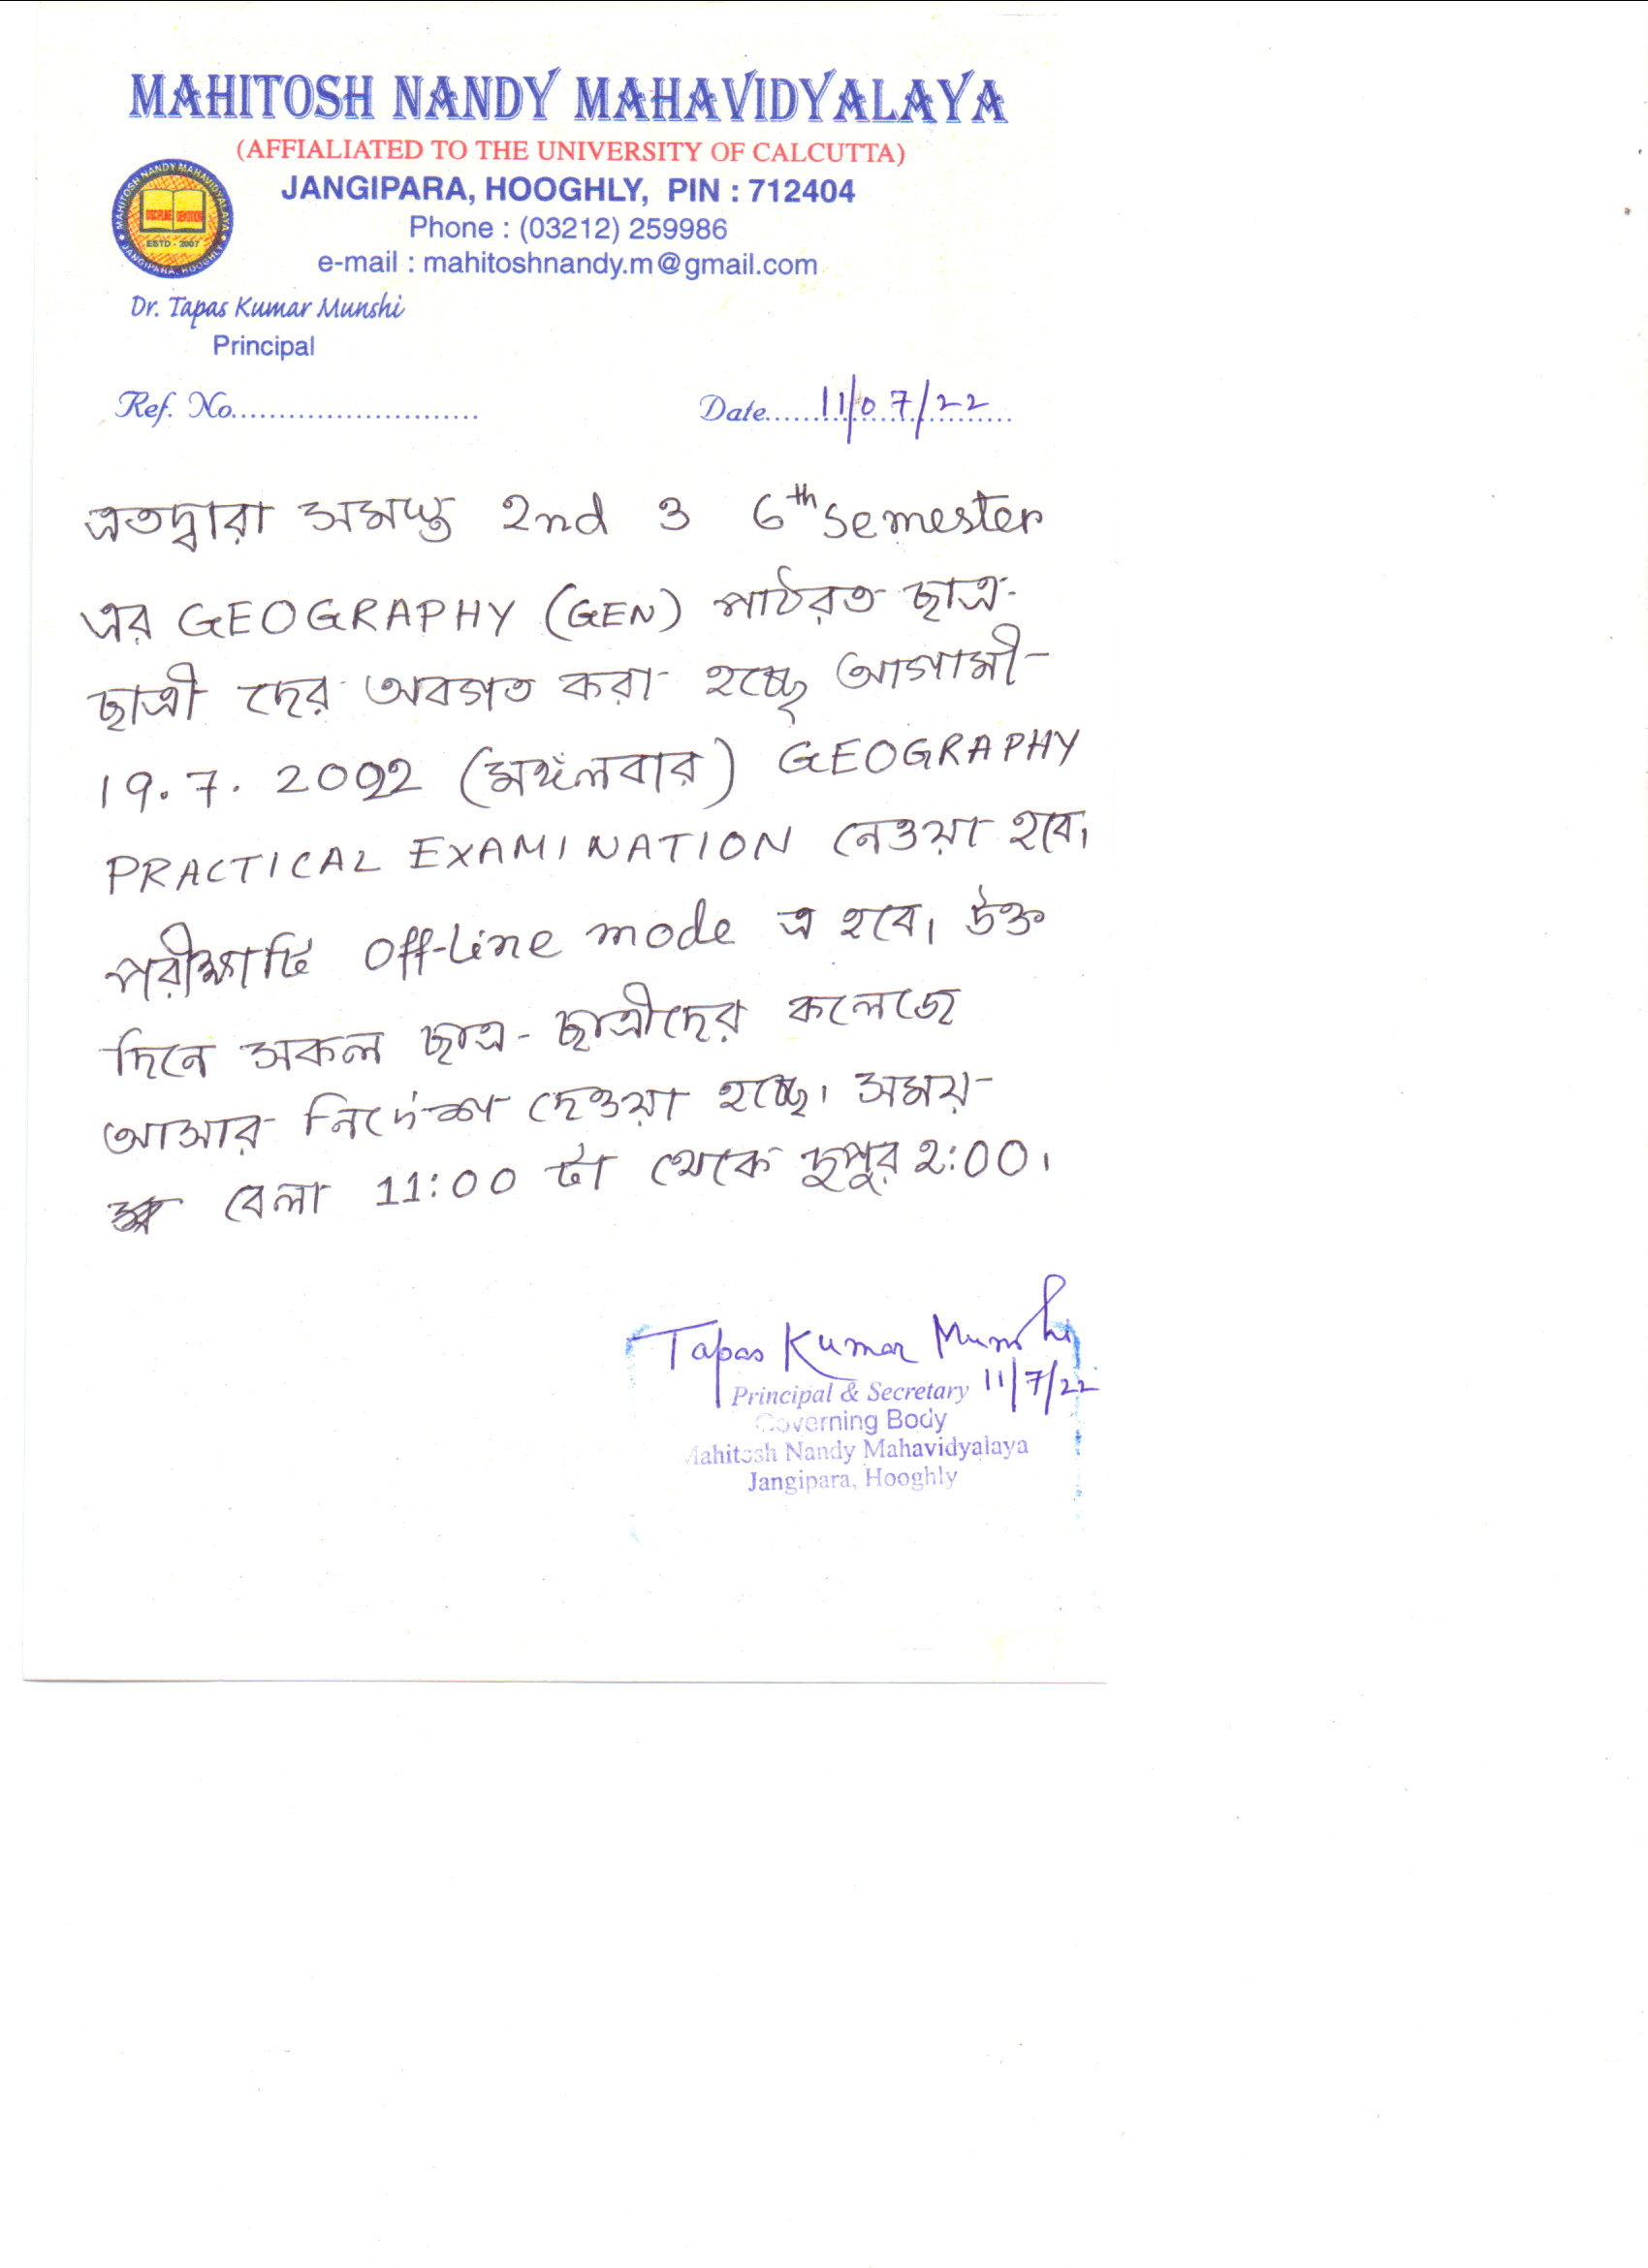 MAHITOSH NANDY MAHAVIDYALAYA
(AFFIALIATED TO THE UNIVERSITY OF CALCUTTA)
JANGIPARA, HOOGHLY, PIN : 712404
Phone : (03212) 259986
e-mail : mahitoshnandy.m@gmail.com
MAHITOSH NANDY MAHAVIDYALAYA
DISCIPLINE DEVOTION
ESTD - 2007
JANGIPARA, HOOGHLY
Dr. Tapas Kumar Munshi
Principal
Ref. No......................... Date....11/07/22....
এতদ্বারা সমস্ত 2nd ও 6th Semester
এর GEOGRAPHY (GEN) পাঠরত ছাত্র-
ছাত্রী দের অবগত করা হচ্ছে আগামী
19.7.2022 (মঙ্গলবার) GEOGRAPHY
PRACTICAL EXAMINATION নেওয়া হবে।
পরীক্ষাটি Off-line mode এ হবে। উক্ত
দিনে সকল ছাত্র-ছাত্রীদের কলেজে
আসার নির্দেশ দেওয়া হচ্ছে। সময়-
বেলা 11:00 টা থেকে দুপুর 2:00।
Tapas Kumar Munshi
11/7/22
Principal & Secretary
Governing Body
Mahitosh Nandy Mahavidyalaya
Jangipara, Hooghly